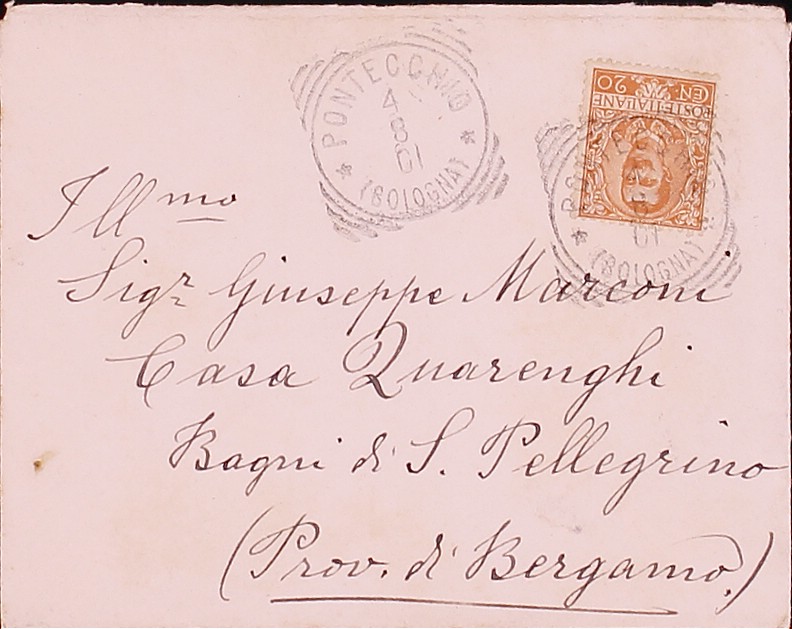 PONTECCHIO
4
8
01
(BOLOGNA)
CEN 20
POSTE ITALIANE
01
(BOLOGNA)
Ill mo
Sigr. Giuseppe Marconi
Casa Quarenghi
Bagni di S. Pellegrino
(Prov. di Bergamo.)